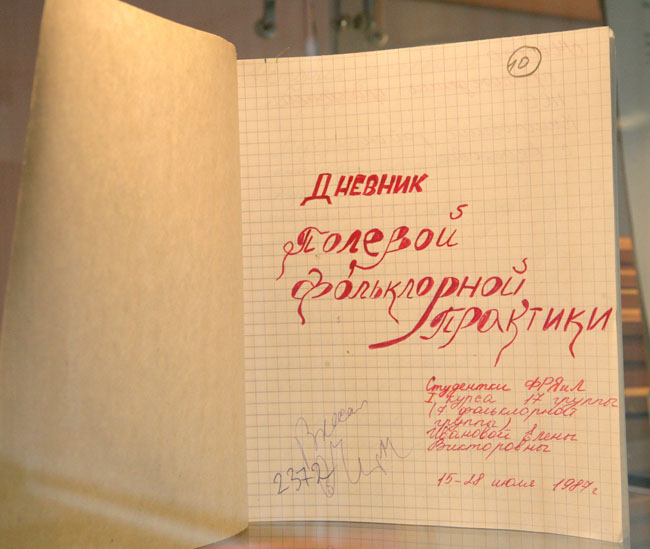 10
Дневник
полевой
фольклорной
практики
Студентки ФРЯиЛ
I курса 17 группы
(7 фольклорной
группы)
Ивановой Елены
Викторовны
15-28 июля 1987г
2372